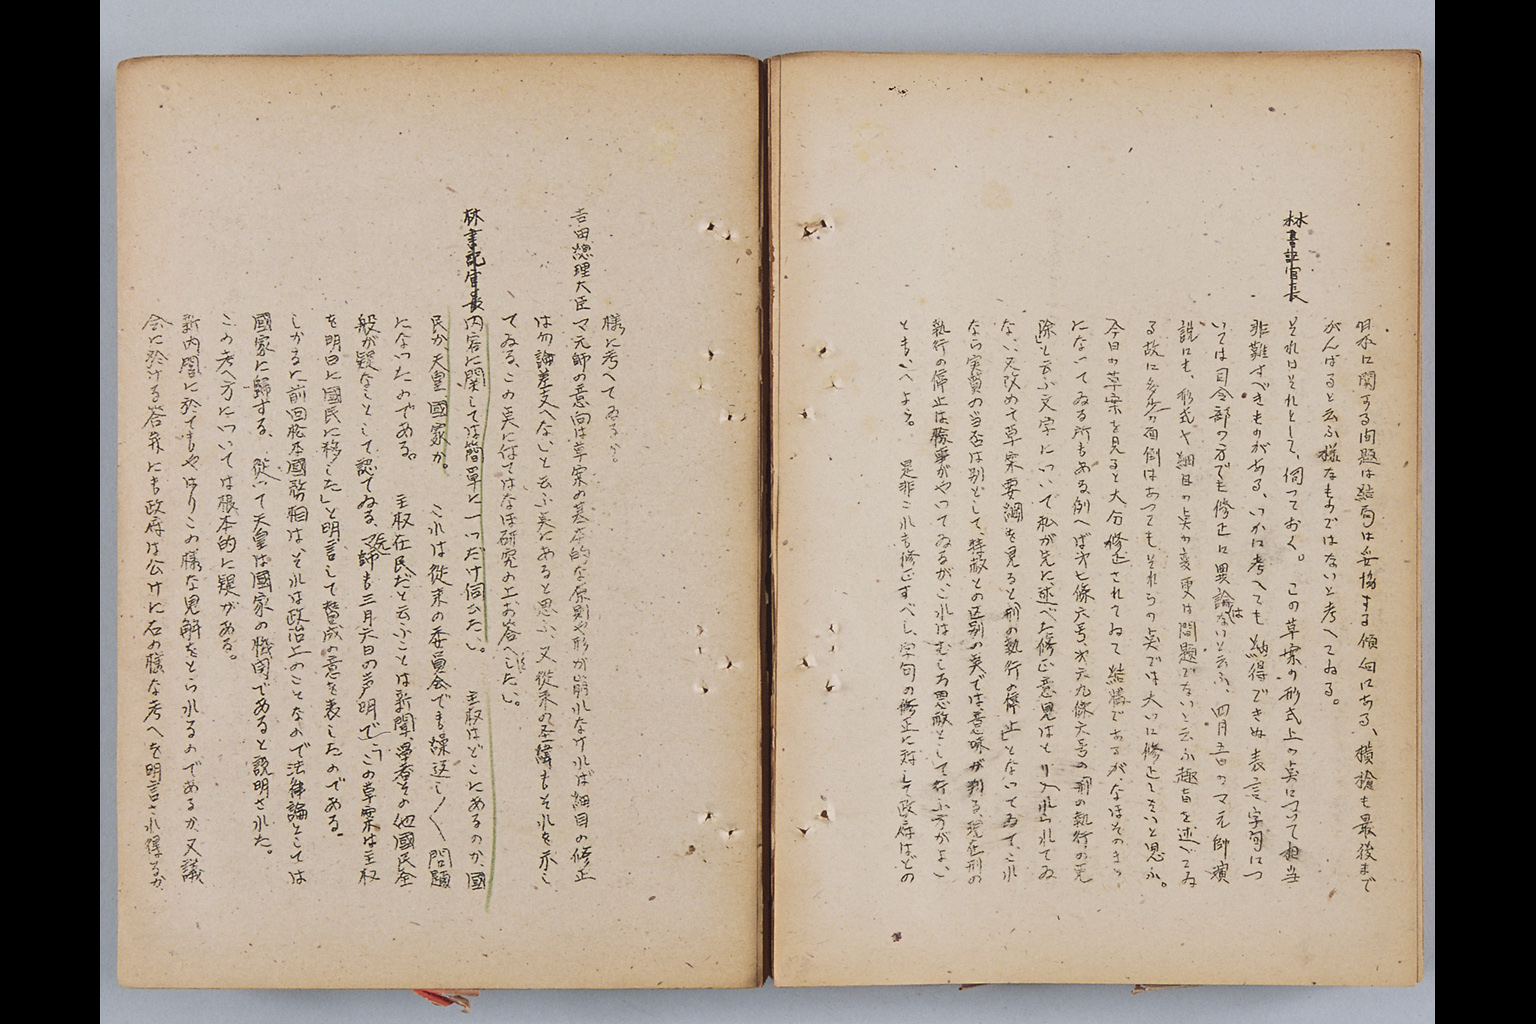 日本に関する問題は結局は妥協する傾向にある、横槍も最後まで
がんばると云ふ様なものではないと考へてゐる。
林書記官長
それはそれとして、伺つておく。この草案の形式上の点について相当
非難すべきものがある、いかに考へても納得できぬ表言字句につ
いては司令部の方でも修正に異論はないと云ふ、四月五日のマ元帥演
説にも、形式や細目の点の変更は問題でないと云ふ趣旨を述べてゐ
る故に多少の面倒はあつてもそれらの点では大いに修正したいと思ふ。
今日の草案を見ると大分修正されてゐて結構であるが、なほそのまゝ
になつてゐる所もある、例へば才七條六号、才六九條六号の「刑の執行の免
除」と云ふ文字について私が先に述べた修正意見はとり入れられてゐ
ない、又改めて草案要綱を見ると「刑の執行の停止」となつてゐて、これ
なら実質の当否は別として、特赦との区別の点では意味が判る、現在刑の
執行の停止は検事がやつてゐるが、これはむしろ恩赦として行ふ方がよい
とも、いへよう。是非これも修正すべし、字句の修正に対して政府はどの
様に考へてゐるか。
吉田総理大臣 マ元帥の意向は草案の基本的な原則や形が崩れなければ細目の修正
は勿論差支へないと云ふ点にあると思ふ、又従来の経緯もそれを示し
てゐる、この点に付てはなほ研究の上お答へしたい。
林書記官長 内容に関しては簡単に一つだけ伺ひたい。主权はどこにあるのか、國
民か天皇か國家か。これは従来の委員会でも繰返し〱問題
になつたのである。主权在民だと云ふことは新聞、学者その他國民全
般が疑なきこととして認てゐる、マ元帥も三月六日の声明で「この草案は主权
を明白に國民に移した」と明言して賛成の意を表したのである。
しかるに前回松本國務相は、それは政治上のことなので法律論としては
國家に歸する、従つて天皇は國家の機関であると説明された。
この考へ方については根本的に疑がある。
新内閣に於てもやはりこの様な見解をとられるのであるか、又議
会に於ける答弁にも政府は公けに右の様な考へを明言され得るか、